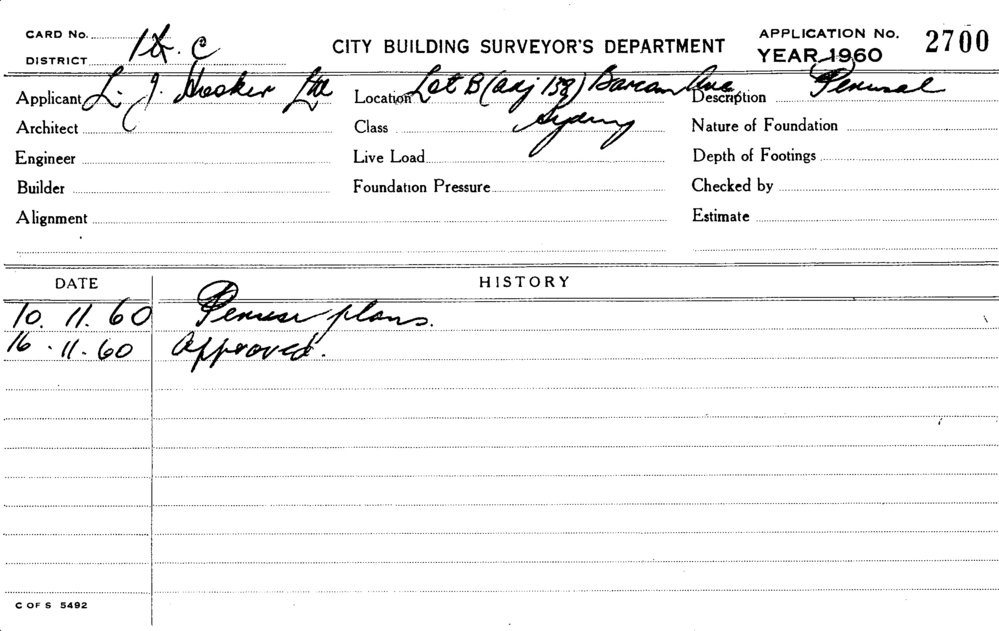 CARD No.
DISTRICT
CITY BUILDING SURVEYOR'S DEPARTMENT
APPLICATION No. 2700
YEAR 1960
Applicant L. J. Hooker Ltd Location Lot B (adj 139) Barcom Ave Description Perusal
Architect Class Sydney Nature of Foundation
Engineer Live Load Depth of Footings
Builder Foundation Pressure Checked by
Alignment Estimate
DATE HISTORY
10. 11. 60 Peruse plans.
16 . 11. 60 Approved.
C OF S 5492